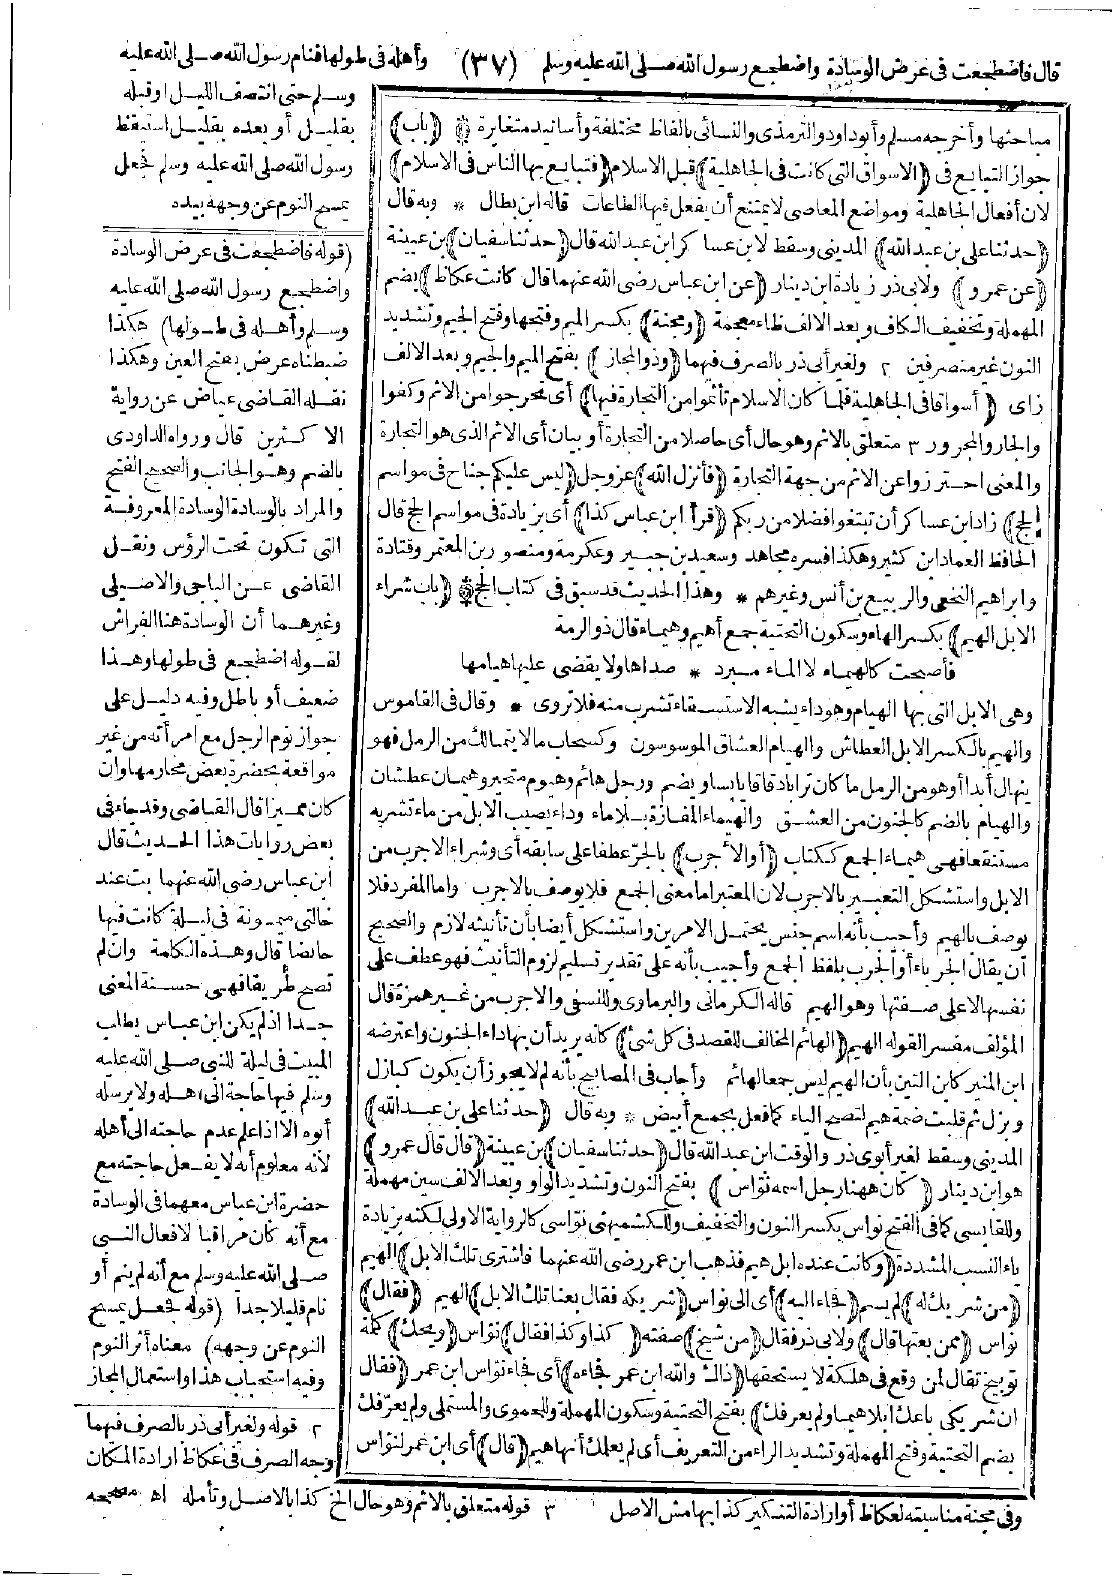 قال فاضطجعت فى عرض الوسادة واضطجع رسول الله صلى الله عليه وسلم (٣٧) وأهله فى طولها فنام رسول الله صلى الله عليه
وسلم حتى انتصف الليل أوقبله
بقليل أو بعده بقليل استيقظ
رسول الله صلى الله عليه وسلم فجعل
يمسح النوم عن وجهه بيده
مباحثها وأخرجه مسلم وأبوداود والترمذى والنسائى بالفاظ مختلفة وأسانيد متغايرة * ﴿باب﴾
جواز التبايع فى ﴿الاسواق التى كانت فى الجاهلية﴾ قبل الاسلام ﴿فتبايع بها الناس فى الاسلام﴾
لان أفعال الجاهلية ومواضع المعاصى لا يمتنع أن يفعل فيها الطاعات قاله ابن بطال * وبه قال
﴿حدثنا على بن عبد الله﴾ المدينى وسقط لابن عساكر ابن عبد الله قال ﴿حدثنا سفيان﴾ بن عيينة
﴿عن عمرو﴾ ولابى ذر زيادة ابن دينار ﴿عن ابن عباس رضى الله عنهما قال كانت عكاظ﴾ بضم
المهملة وتخفيف الكاف وبعد الالف ظاء معجمة ﴿ومجنة﴾ بكسر الميم وفتحها وفتح الجيم وتشديد
النون غير منصرفين ٢ ولغير أبى ذر بالصرف فيهما ﴿وذو المجاز﴾ بفتح الميم والجيم وبعد الالف
زاى ﴿أسواقا فى الجاهلية فلما كان الاسلام تأثموا من التجارة فيها﴾ أى تحرجوا من الاثم وكفوا
والجار والمجرور ٣ متعلق بالاثم وهو حال أى حاصلا من التجارة أو بيان أى الاثم الذى هو التجارة
والمعنى احترزوا عن الاثم من جهة التجارة ﴿فأنزل الله﴾ عزوجل ﴿ليس عليكم جناح فى مواسم
الحج﴾ زاد ابن عساكر أن تبتغوا فضلا من ربكم ﴿قرأ ابن عباس كذا﴾ أى بزيادة فى مواسم الحج قال
الحافظ العماد ابن كثير وهكذا فسره مجاهد وسعيد بن جبير وعكرمة ومنصور بن المعتمر وقتادة
وابراهيم النخعى والربيع بن أنس وغيرهم * وهذا الحديث قد سبق فى كتاب الحج * ﴿باب شراء
الابل الهيم﴾ بكسر الهاء وسكون التحتية جمع أهيم وهيماء قال ذو الرمة
فأصبحت كالهيماء لا الماء مبرد * صداها ولا يقضى عليها هيامها
وهى الابل التى بها الهيام وهو داء يشبه الاستسقاء تشرب منه فلا تروى * وقال فى القاموس
والهيم بالكسر الابل العطاش والهيام العشاق الموسوسون وكسحاب مالا يتمالك من الرمل فهو
ينهال أبدا أو هو من الرمل ما كان ترابا دقاقا يابسا ويضم ورجل هائم وهيوم متحير وهيمان عطشان
والهيام بالضم كالجنون من العشق والهيماء المفازة بلا ماء وداء يصيب الابل من ماء تشربه
مستنقعا فهى هيماء الجمع ككتاب ﴿أو الأجرب﴾ بالجر عطفا على سابقه أى وشراء الاجرب من
الابل واستشكل التعبير بالاجرب لان المعتبر اما معنى الجمع فلا يوصف بالاجرب واما المفرد فلا
يوصف بالهيم وأجيب بأنه اسم جنس يحتمل الامرين واستشكل أيضا بأن تأنيثه لازم والصحيح
أن يقال الجرباء أو الجرب بلفظ الجمع وأجيب بأنه على تقدير تسليم لزوم التأنيث فهو عطف على
نفسها لا على صفتها وهو الهيم قاله الكرمانى والبرماوى وللنسفى والاجرب من غير همزة قال
المؤلف مفسرا لقوله الهيم ﴿الهائم المخالف للقصد فى كل شئ﴾ كانه يريد أن بها داء الجنون واعترضه
ابن المنير كابن التين بأن الهيم ليس جمعا لهائم وأجاب فى المصابيح بأنه لم لا يجوز أن يكون كبازل
وبزل ثم قلبت ضمة هيم لتصح الياء كما فعل بجمع أبيض * وبه قال ﴿حدثنا على بن عبد الله﴾
المدينى وسقط لغير أبوى ذر والوقت ابن عبد الله قال ﴿حدثنا سفيان﴾ بن عيينة ﴿قال قال عمرو﴾
هو ابن دينار ﴿كان ههنا رجل اسمه نواس﴾ بفتح النون وتشديد الواو وبعد الالف سين مهملة
وللقابسى كما فى الفتح نواس بكسر النون والتخفيف وللكشميهنى نواسى كالرواية الاولى لكنه بزيادة
ياء النسب المشددة ﴿وكانت عنده ابل هيم فذهب ابن عمر رضى الله عنهما فاشترى تلك الابل﴾ الهيم
﴿من شريك له﴾ لم يسم ﴿فجاء اليه﴾ أى الى نواس ﴿شريكه فقال بعنا تلك الابل﴾ الهيم ﴿فقال﴾
نواس ﴿ممن بعتها قال﴾ ولابى ذر فقال ﴿من شيخ﴾ صفته ﴿كذا وكذا فقال﴾ نواس ﴿ويحك﴾ كلمة
توبيخ تقال لمن وقع فى هلكة لا يستحقها ﴿ذاك والله ابن عمر فجاءه﴾ أى فجاء نواس ابن عمر ﴿فقال
ان شريكى باعك ابلا هيما ولم يعرفك﴾ بفتح التحتية وسكون المهملة وللحموى والمستملى ولم يعرفك
بضم التحتية وفتح المهملة وتشديد الراء من التعريف أى لم يعلمك أنها هيم ﴿قال﴾ أى ابن عمر لنواس
(قوله فاضطجعت فى عرض الوسادة
واضطجع رسول الله صلى الله عليه
وسلم وأهله فى طولها) هكذا
ضبطناه عرض بفتح العين وهكذا
نقله القاضى عياض عن رواية
الاكثرين قال ورواه الداودى
بالضم وهو الجانب والصحيح الفتح
والمراد بالوسادة الوسادة المعروفة
التى تكون تحت الرؤس ونقل
القاضى عن الباجى والاصيلى
وغيرهما أن الوسادة هنا الفراش
لقوله اضطجع فى طولها وهذا
ضعيف أو باطل وفيه دليل على
جواز نوم الرجل مع امرأته من غير
مواقعة بحضرة بعض محارمها وان
كان مميزا قال القاضى وقد جاء فى
بعض روايات هذا الحديث قال
ابن عباس رضى الله عنهما بت عند
خالتى ميمونة فى ليلة كانت فيها
حائضا قال وهذه الكلمة وان لم
تصح طريقا فهى حسنة المعنى
جدا اذ لم يكن ابن عباس يطلب
المبيت فى ليلة للنبى صلى الله عليه
وسلم فيها حاجة الى أهله ولا يرسله
أبوه الا اذا علم عدم حاجته الى أهله
لأنه معلوم أنه لا يفعل حاجته مع
حضرة ابن عباس معهما فى الوسادة
مع أنه كان مراقبا لافعال النبى
صلى الله عليه وسلم مع أنه لم ينم أو
نام قليلا جدا (قوله فجعل يمسح
النوم عن وجهه) معناه أثر النوم
وفيه استحباب هذا واستعمال المجاز
٢ قوله ولغير أبى ذر بالصرف فيهما
وجه الصرف فى عكاظ ارادة المكان
وفى مجنة مناسبته لعكاظ أو ارادة التنكير كذا بهامش الاصل ٣ قوله متعلق بالاثم وهو حال الخ كذا بالاصل وتأمله اه مصححه